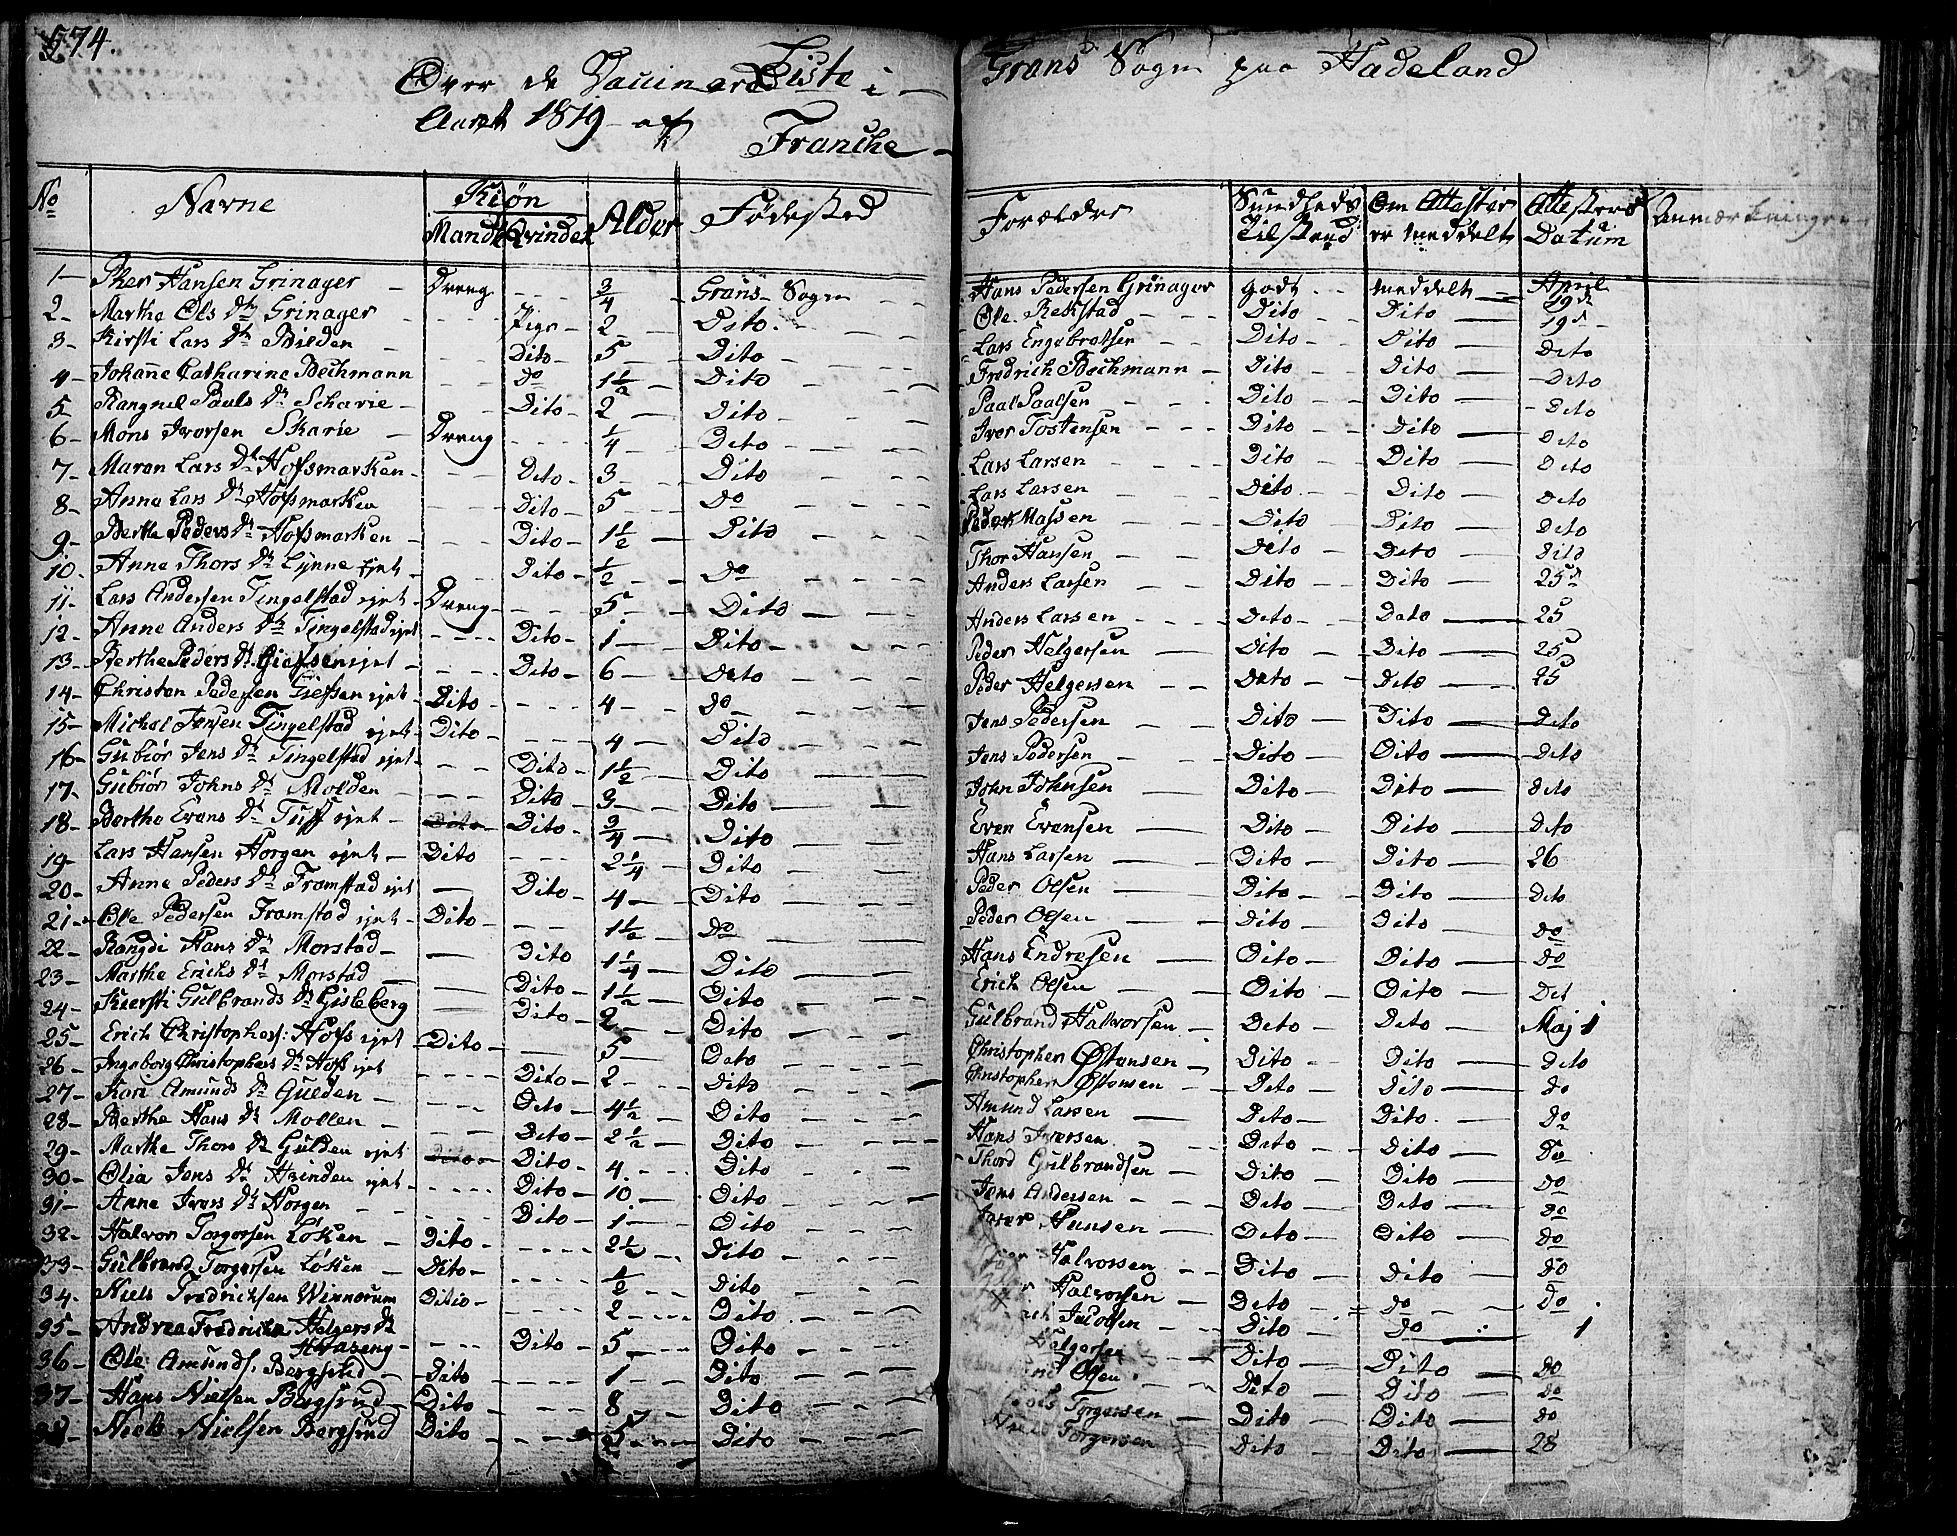 574.
Liste i Grans Sogn paa Hadeland
Over de Vaccinerede
Aaret 1819 af
Franche
No Navne Kiøn Alder Fødested Forældre Sundheds Tilstand Om Attester er meddelt Attestens Datum Anmærkninger
Mandk Qvindek
1 Peer Hansen Grinager Dreng 3/4 Grans Sogn Hans Pedersen Grinager godt meddelt April 19de
2 Marthe Ols Dr Grinager Pige 2 Dito Ole Rekstad Dito Dito 19de
3 Kirsti Lars Dr Bilden Dito 5 Dito Lars Engebretsen Dito Dito Dito
4 Johane Catharine Bechmann Do 1 1/2 Dito Fredrich Bechmann Dito Dito Dito
5 Rangnil Pauls Dr Scharie Dito 2 Dito Paal Paalsen Dito Dito Dito
6 Mons Iversen Skarie Dreng 1/4 Dito Iver Tostensen Dito Dito Dito
7 Maren Lars Dr Hofsmarken Dito 3 Dito Lars Larsen Dito Dito Dito
8 Anne Lars Dr Hofsmarken Dito 5 Do Lars Larsen Dito Dito Dito
9 Berthe Peders Dr Hofsmarken Dito 1 1/2 Dito Peder Massen Dito Dito Dito
10 Anne Thors Dr Lynne ejet Dito 1/2 Do Thor Hansen Dito Dito Dito
11 Lars Andersen Tingelstad ejet Dreng 5 Dito Anders Larsen Dito Dito 25de
12 Anne Anders Dr Tingelstad ejet Dito 1 Dito Anders Larsen Dito Dito 25
13 Berthe Peders Dr Giefsen ejet Dito 6 Dito Peder Helgersen Dito Dito 25
14 Christen Pedersen Giefsen ejet Dito 4 Do Peder Helgersen Dito Dito 25
15 Michel Jensen Tingelstad ejet Dito 4 Dito Jens Pedersen Dito Dito Dito
16 Gubiør Jens Dr Tingelstad ejet Dito 1 1/2 Dito Jens Pedersen Dito Dito Dito
17 Gubiør Johns Dr Molden Dito 3 Dito John Johnsen Dito Dito Dito
18 Berthe Evens Dr Tuff ejet Dito Dito 3/4 Dito Even Evensen Dito Dito Dito
19 Lars Hansen Horgen ejet Dito 2 1/4 Dito Hans Larsen Dito Dito 26
20 Anne Peders Dr Framstad ejet Dito 4 Dito Peder Olsen Dito Dito Dito
21 Ole Pedersen Framstad ejet Dito 1 1/2 Do Peder Olsen Dito Dito Do
22 Rangdi Hans Dr Morstad Dito 1 1/4 Dito Hans Endresen Dito Dito Do
23 Marthe Erichs Dr Morstad Dito 1 1/2 Dito Erich Olsen Dito Dito Dit
24 Kiersti Gulbrands Dr Gisleberg Dito 2 Dito Gulbrand Halvorsen Dito Dito Maj 1
25 Erich Christophers: Hofs ejet Dito 5 Dito Christopher Østensen Dito Dito Dito
26 Ingeborg Christophers Dr Hofs ejet Dito 2 Dito Christopher Østensen Dito Dito Do
27 Kari Amunds Dr Gulden Dito 4 1/2 Dito Amund Larsen Dito Dito Do
28 Berthe Hans Dr Mollen Dito 2 1/2 Dito Hans Iversen Dito Dito Do
29 Marthe Thors Dr Gulden ejet Dito Dito 4 Dito Thord Gulbrandsen Dito Dito Do
30 Olia Jens Dr Hvinden ejet Dito 10 Dito Jens Andersen Dito Dito Do
31 Anne Ivers Dr Horgen Dito 1 Dito Iver Hansen Dito Dito Do
32 Halvor Torgersen Løken Dito 2 1/2 Dito Halvorsen Dito Dito Do
33 Gulbrand Torgersen Løken Dito 1/2 Dito Halvorsen Dito Do Do
34 Niels Fredrichsen Winnorum Ditio 2 Dito Jacobsen Dito Do 1
35 Andrea Fredricha Helgers Dr Hvaseng Dito 5 Dito Helgersen Dito Dito Do
36 Ole Amunds. Bergsund Dito 1 Dito Olsen Dito Dito Do
37 Hans Nielsen Bergsund Dito 8 Dito Niels Torgersen Dito Dito Do
38 Niels Nielsen Bergsund Dito 5 Dito Niels Torgersen Dito Dito 28